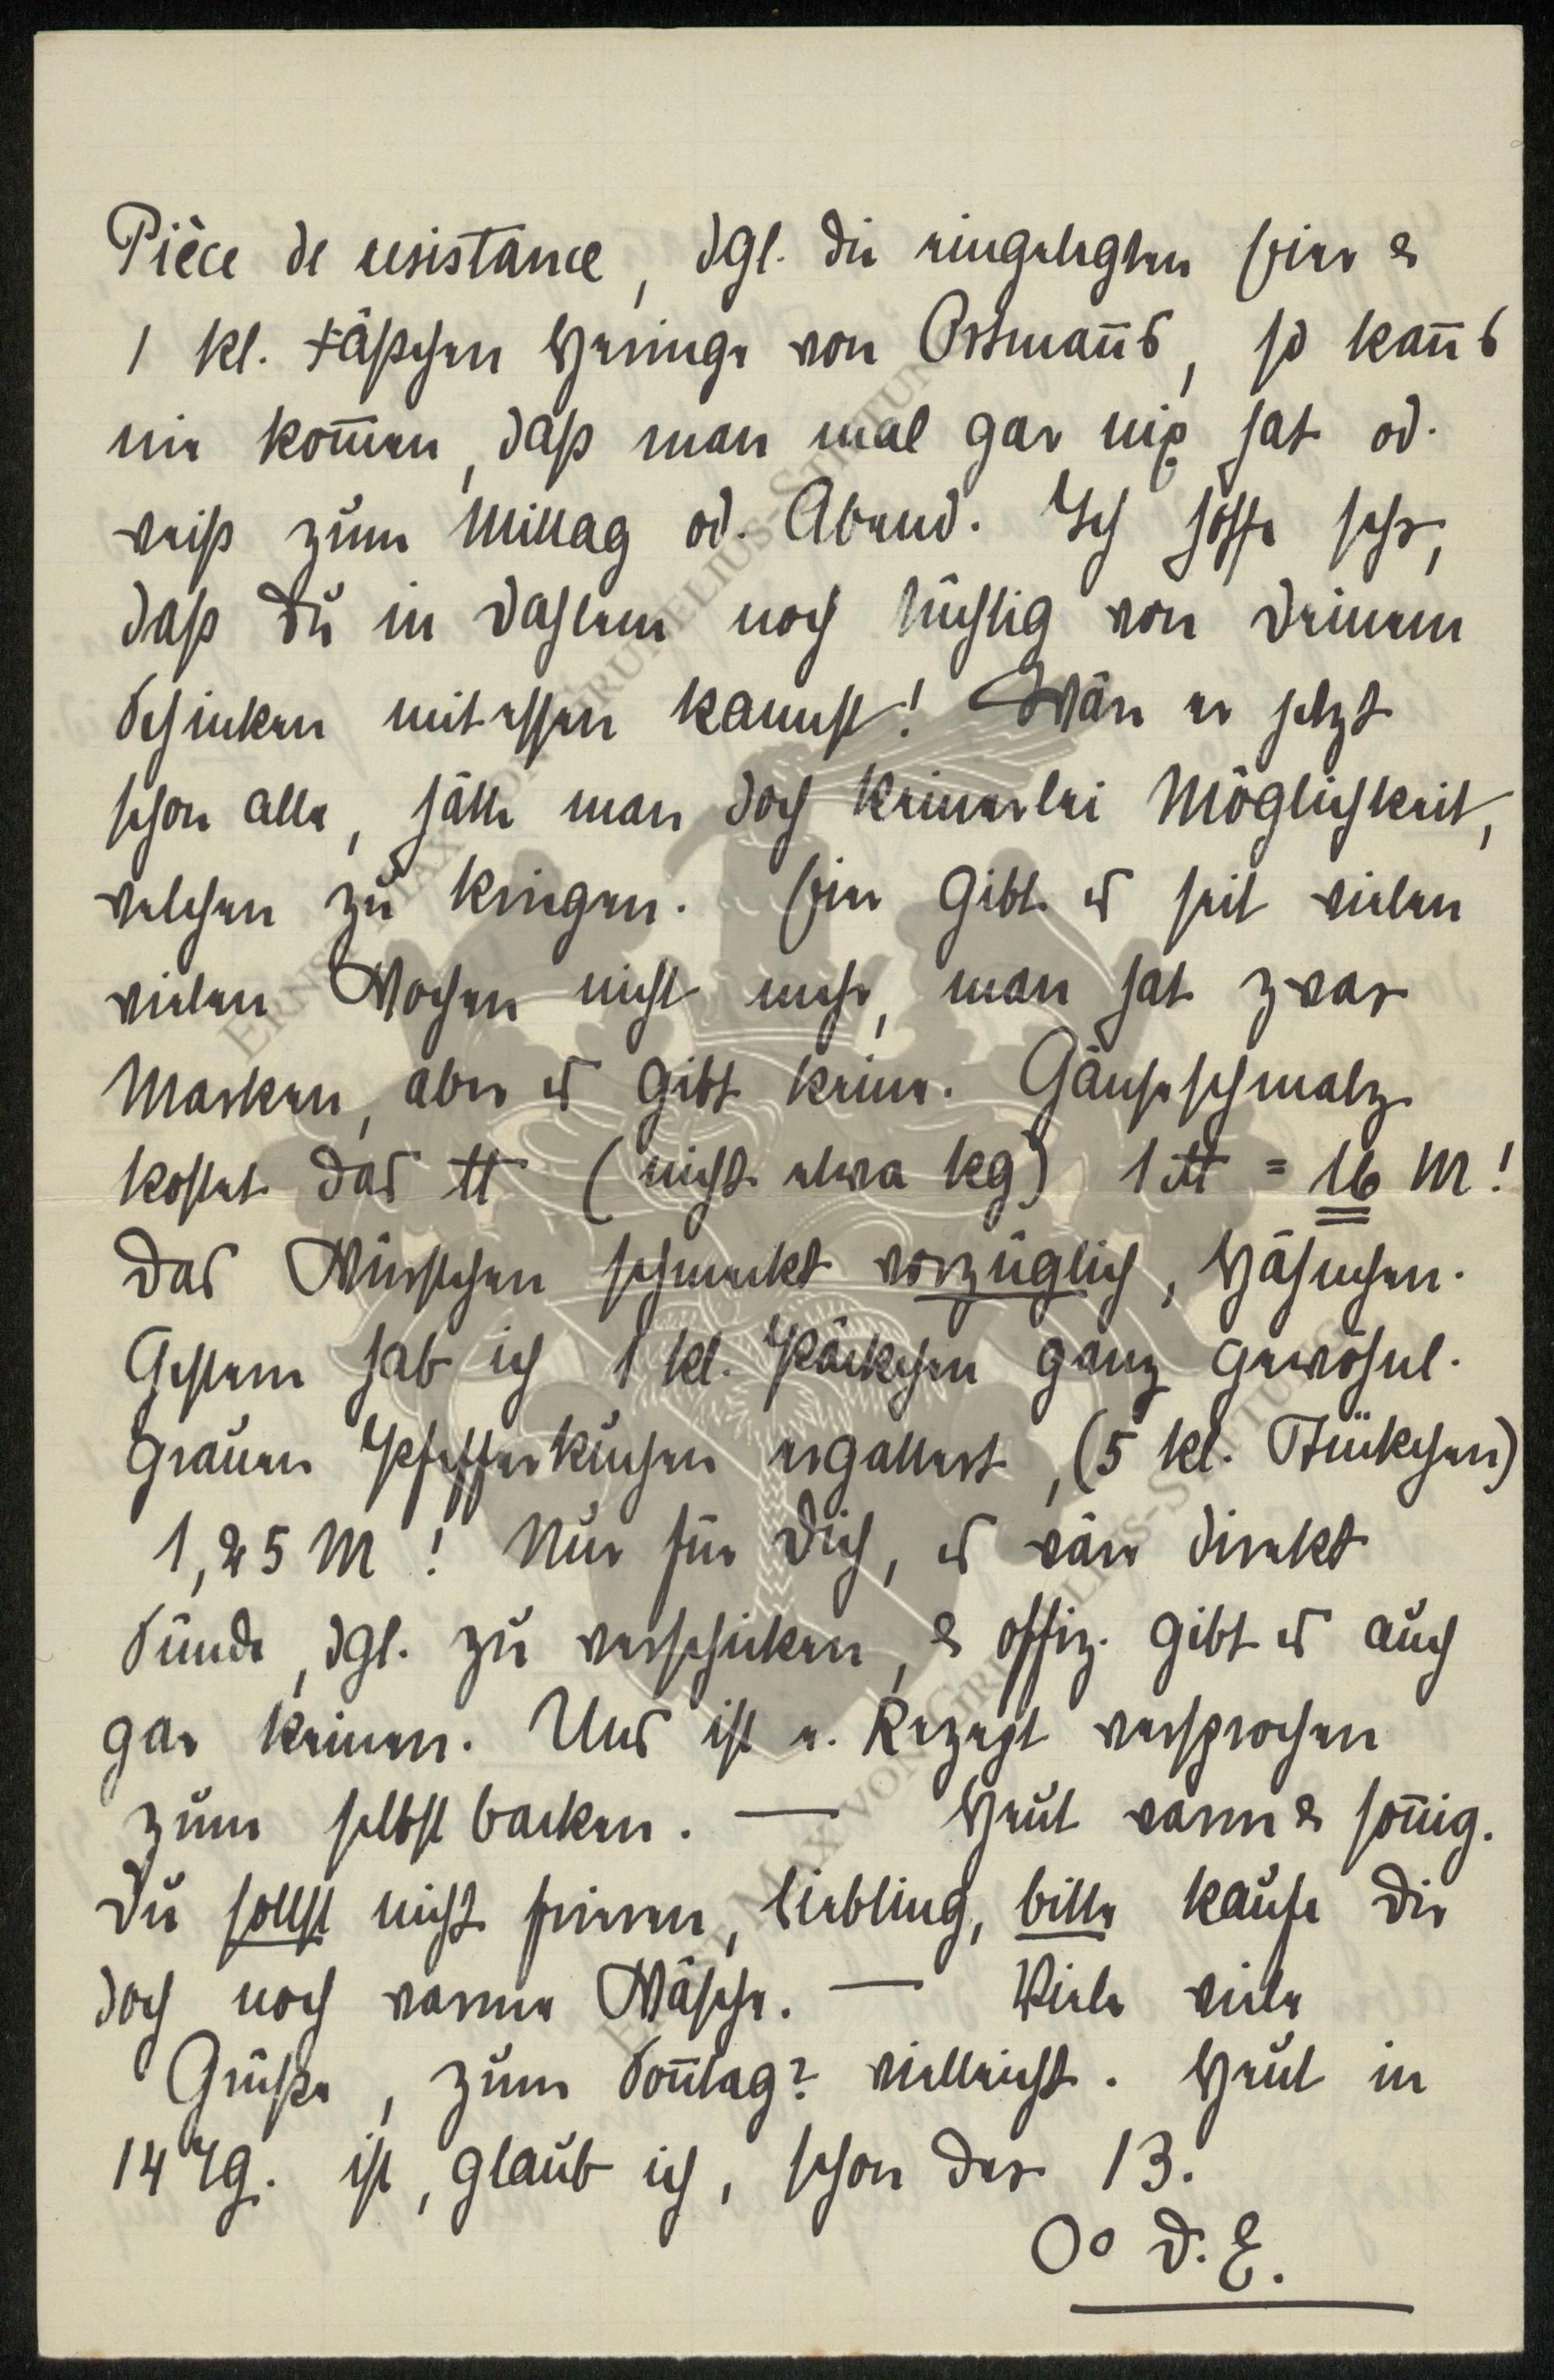 Pièce de resistance, dgl. die eingelegten Eier &
1 kl. Fäßchen Heringe von Ostmanns, so kanns
nie kommen, daß man mal gar nix hat od.
weiß zum Mittag od. Abend. Ich hoffe sehr,
daß Du in Dahlem noch tüchtig von Deinem
Schinken mitessen kannst! Wär er jetzt
schon alle, hätte man doch keinerlei Möglichkeit,
welchen zu kriegen. Eier gibt es seit vielen
vielen Wochen nicht mehr, man hat zwar
Marken, aber es gibt keine. Gänseschmalz
kostet das ℔ (nicht etwa kg) 1 ℔ = 16 M!
Das Würstchen schmeckt vorzüglich, Hähnchen.
Gestern hab ich 1 kl. Päckchen ganz gewöhnl.
grauen Pfefferkuchen ergattert, (5 kl. Stückchen)
1,25 M! Nur für Dich, es wäre direkt
Sünde, dgl. zu verschicken, & offiz. gibt es auch
gar keinen. Uns ist e. Rezept versprochen
zum selbst backen. — Heut warm & sonnig.
Du sollst nicht frieren, Liebling, bitte kaufe Dir
doch noch warme Wäsche. — Viele viele
Grüße, zum Sonntag? vielleicht. Heut in
14 Tg. ist, glaub ich, schon der 13.
Oo D. E.
ERNST MAX VON GRUNELIUS-STIFTUNG
ERNST MAX VON GRUNELIUS-STIFTUNG